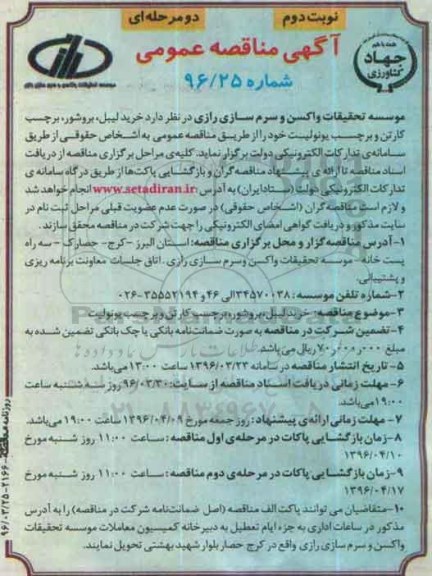 نوبت دوم
دو مرحله ای
آگهی مناقصه عمومی
شماره ۹۶/۲۵
جهاد
کشاورزی
موسسه تحقیقات واکسن و سرم سازی رازی
موسسه تحقیقات واکسن و سرم سازی رازی در نظر دارد خرید لیبل، بروشور، برچسب
کارتن و برچسب یونولیت خود را از طریق مناقصه عمومی به اشخاص حقوقی از طریق
سامانه‌ی تدارکات الکترونیکی دولت برگزار نماید. کلیه‌ی مراحل برگزاری مناقصه از دریافت
اسناد مناقصه تا ارائه ی پیشنهاد مناقصه گران و بازگشایی پاکت‌ها از طریق درگاه سامانه ی
تدارکات الکترونیکی دولت (ستاد ایران) به آدرس: www.setadiran.ir انجام خواهد شد
و لازم است مناقصه گران (اشخاص حقوقی) در صورت عدم عضویت قبلی مراحل ثبت نام در
سایت مذکور و دریافت گواهی امضای الکترونیکی را جهت شرکت در مناقصه محقق سازند.
۱-آدرس مناقصه گزار و محل برگزاری مناقصه: استان البرز -کرج- حصارک - سه راه
پست خانه- موسسه تحقیقات واکسن و سرم سازی رازی. اتاق جلسات معاونت برنامه ریزی
و پشتیبانی.
۲-شماره تلفن موسسه: ۳۴۵۷۰۰۳۸ الی ۴۶ و ۳۵۵۵۲۱۹۴-۰۲۶
۳-موضوع مناقصه: خرید لیبل، بروشور، برچسب کارتن و برچسب یونولیت
۴-تضمین شرکت در مناقصه به صورت ضمانت‌نامه بانکی یا چک بانکی تضمین شده به
مبلغ ریال می‌باشد.
۵- تاریخ انتشار مناقصه در سامانه ۱۳۹۶/۰۳/۲۳ ساعت ۱۳:۰۰ می‌باشد.
۶- مهلت زمانی دریافت اسناد مناقصه از سایت: ۹۶/۰۳/۳۰ روز سه شنبه ساعت
۱۹:۰۰ می‌باشد.
۷- مهلت زمانی ارائه‌ی پیشنهاد: روز جمعه مورخ ۱۳۹۶/۰۴/۰۹ ساعت ۱۹:۰۰ می‌باشد.
۸-زمان بازگشایی پاکات در مرحله‌ی اول مناقصه: ساعت ۱۱:۰۰ روز شنبه مورخ
۱۳۹۶/۰۴/۱۰
۹-زمان بازگشایی پاکات در مرحله‌ی دوم مناقصه: ساعت ۱۱:۰۰ روز شنبه مورخ
۱۳۹۶/۰۴/۱۷
۱۰-متقاضیان می توانند پاکت الف مناقصه (اصل ضمانت‌نامه شرکت در مناقصه) را به آدرس
مذکور در ساعات اداری به جزء ایام تعطیل به دبیرخانه کمیسیون معاملات موسسه تحقیقات
واکسن و سرم سازی رازی واقع در کرج حصار بلوار شهید بهشتی تحویل نمایند.
۹۶/۰۳/۲۵-۲۱۶۶